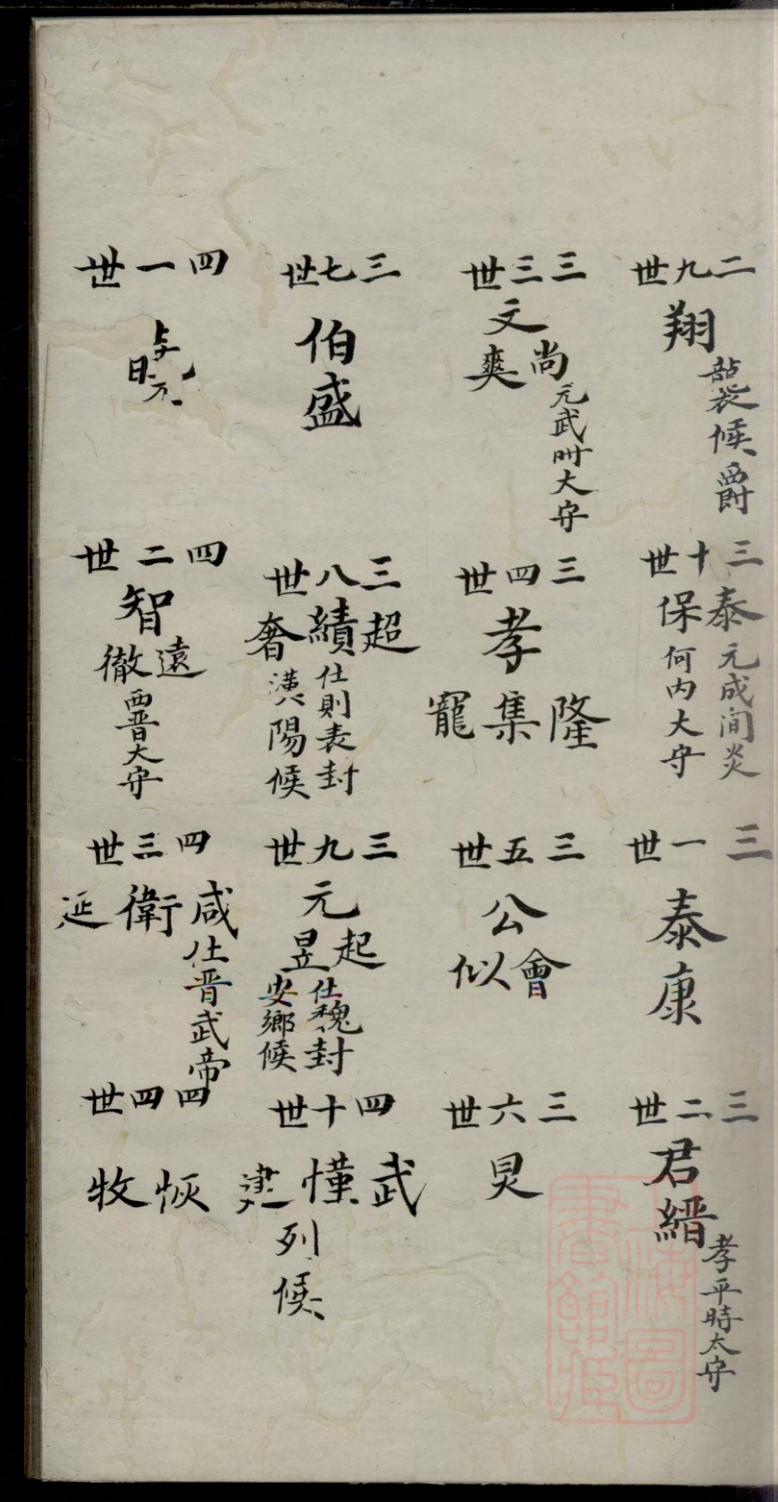 二九世
翔
襲候爵
三十世
泰 元成间炎
保 何内大守
三一世
泰康
三二世
君縉
孝平時太守
三三世
文
尚 元武時大守
爽
三四世
孝
隆 集 寵
三五世
公
會 似
三六世
炅
三七世
伯盛
三八世
超 績 奢
仕則表封
漢陽候
三九世
元
起 昱
仕魏封
安鄉候
四十世
武 慬 建
列候
四一世
四二世
智
遠 徹
晋大守
四三世
咸 衛 延
仕晋武帝
四四世
恢 牧